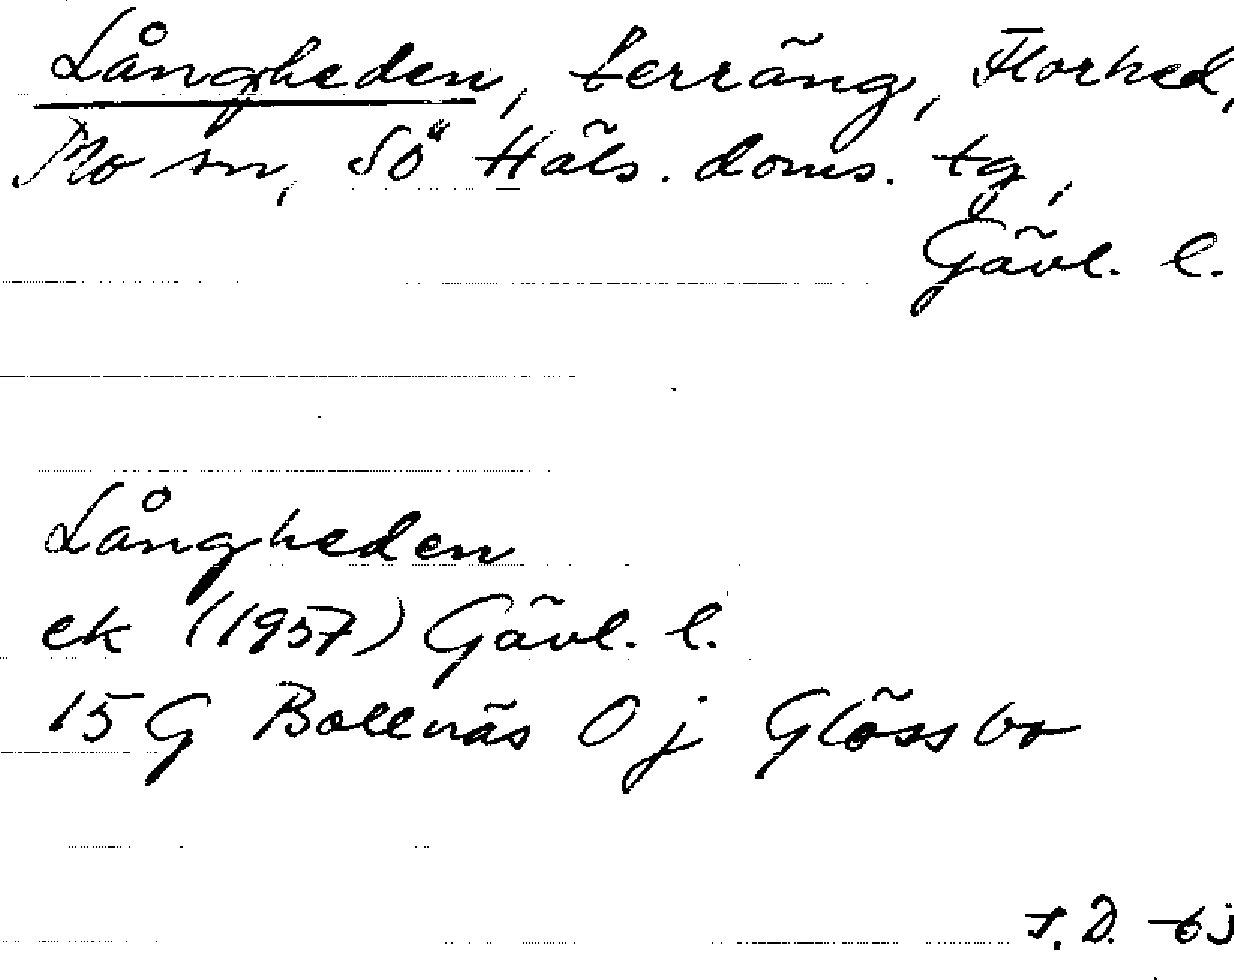 Långheden, terräng, Florhed,
Mo sn, Sö Häls. doms. tg,
Gävl. l.
Långheden
ek (1957) Gävl. l.
15 G Bollnäs 0 j Glössbo